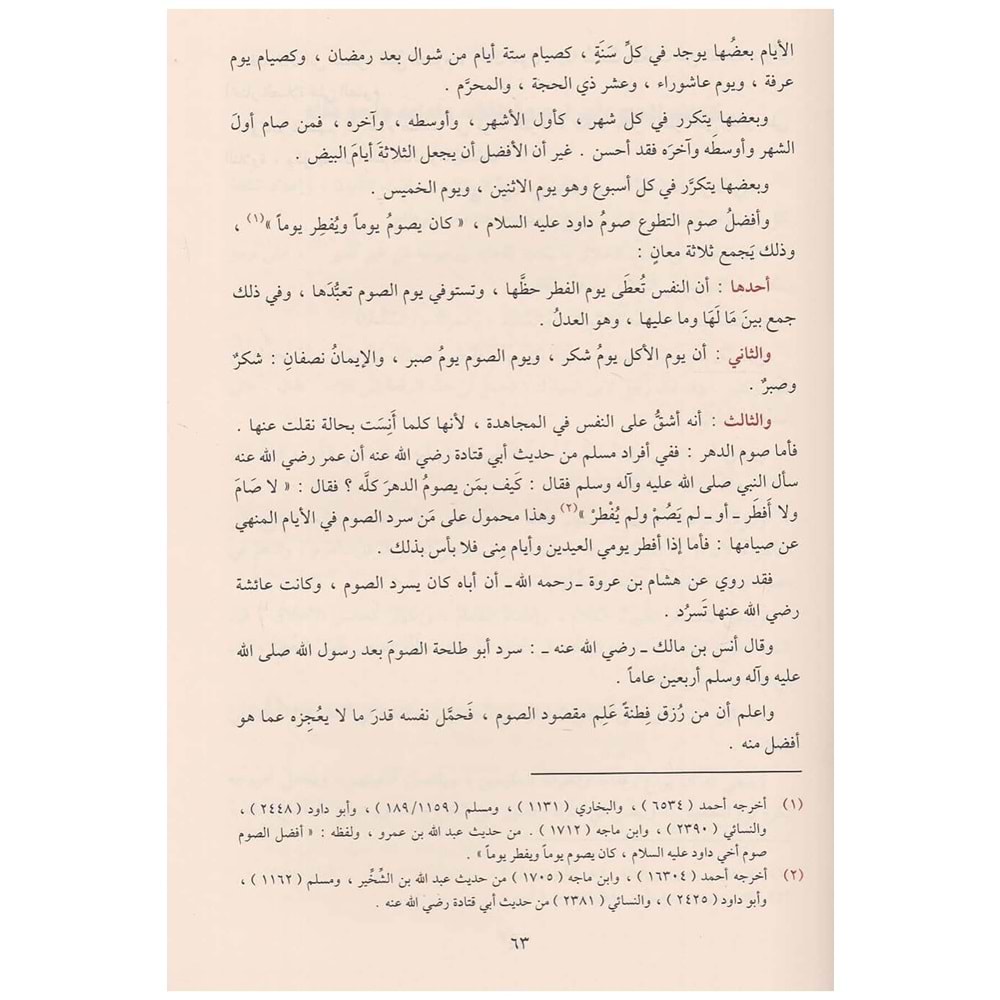 الأيام بعضُها يوجد في كلِّ سَنَةٍ ، كصيام ستة أيام من شوال بعد رمضان ، وكصيام يوم
عرفة ، ويوم عاشوراء ، وعشر ذي الحجة ، والمحرَّم .
وبعضها يتكرر في كل شهر ، كأول الأشهر ، وأوسطه ، وآخره ، فمن صام أولَ
الشهر وأوسطَه وآخرَه فقد أحسن . غير أن الأفضل أن يجعل الثلاثةَ أيامَ البيض .
وبعضها يتكرَّر في كل أسبوع وهو يوم الاثنين ، ويوم الخميس .
وأفضلُ صوم التطوع صومُ داود عليه السلام ، « كان يصومُ يوماً ويُفطِر يوماً »(١) ،
وذلك يَجمع ثلاثة معانٍ :
أحدها : أن النفس تُعطَى يوم الفطر حظَّها ، وتستوفي يوم الصوم تعبُّدَها ، وفي ذلك
جمع بينَ مَا لَهَا وما عليها ، وهو العدلُ .
والثاني : أن يوم الأكل يومُ شكر ، ويوم الصوم يومُ صبر ، والإيمانُ نصفانِ : شكرٌ
وصبرٌ .
والثالث : أنه أشقُّ على النفس في المجاهدة ، لأنها كلما أَنِسَت بحالة نقلت عنها .
فأما صوم الدهر : ففي أفراد مسلم من حديث أبي قتادة رضي الله عنه أن عمر رضي الله عنه
سأل النبي صلى الله عليه وآله وسلم فقال : كَيف بمَن يصومُ الدهرَ كلَّه ؟ فقال : « لا صَامَ
ولا أَفطَر ـ أو ـ لم يَصُمْ ولم يُفْطرْ »(٢) وهذا محمول على مَن سرد الصوم في الأيام المنهي
عن صيامها : فأما إذا أفطر يومي العيدين وأيام مِنى فلا بأس بذلك .
فقد روي عن هشام بن عروة ـ رحمه الله ـ أن أباه كان يسرد الصوم ، وكانت عائشة
رضي الله عنها تَسرُد .
وقال أنس بن مالك ـ رضي الله عنه ـ : سرد أبو طلحة الصومَ بعد رسول الله صلى الله
عليه وآله وسلم أربعين عاماً .
واعلم أن من رُزق فِطنةً عَلِم مقصود الصوم ، فَحمَّل نفسه قدرَ ما لا يعُجِزه عما هو
أفضل منه .
(١) أخرجه أحمد ( ٦٥٣٤ ) ، والبخاري ( ١١٣١ ) ، ومسلم ( ١١٥٩/١٨٩ ) ، وأبو داود ( ٢٤٤٨ ) ،
والنسائي ( ٢٣٩٠ ) ، وابن ماجه ( ١٧١٢ ) . من حديث عبد الله بن عمرو ، ولفظه : « أفضل الصوم
صوم أخي داود عليه السلام ، كان يصوم يوماً ويفطر يوماً » .
(٢) أخرجه أحمد ( ١٦٣٠٤ ) ، وابن ماجه ( ١٧٠٥ ) من حديث عبد الله بن الشِّخِّير ، ومسلم ( ١١٦٢ ) ،
وأبو داود ( ٢٤٢٥ ) ، والنسائي ( ٢٣٨١ ) من حديث أبي قتادة رضي الله عنه .
٦٣